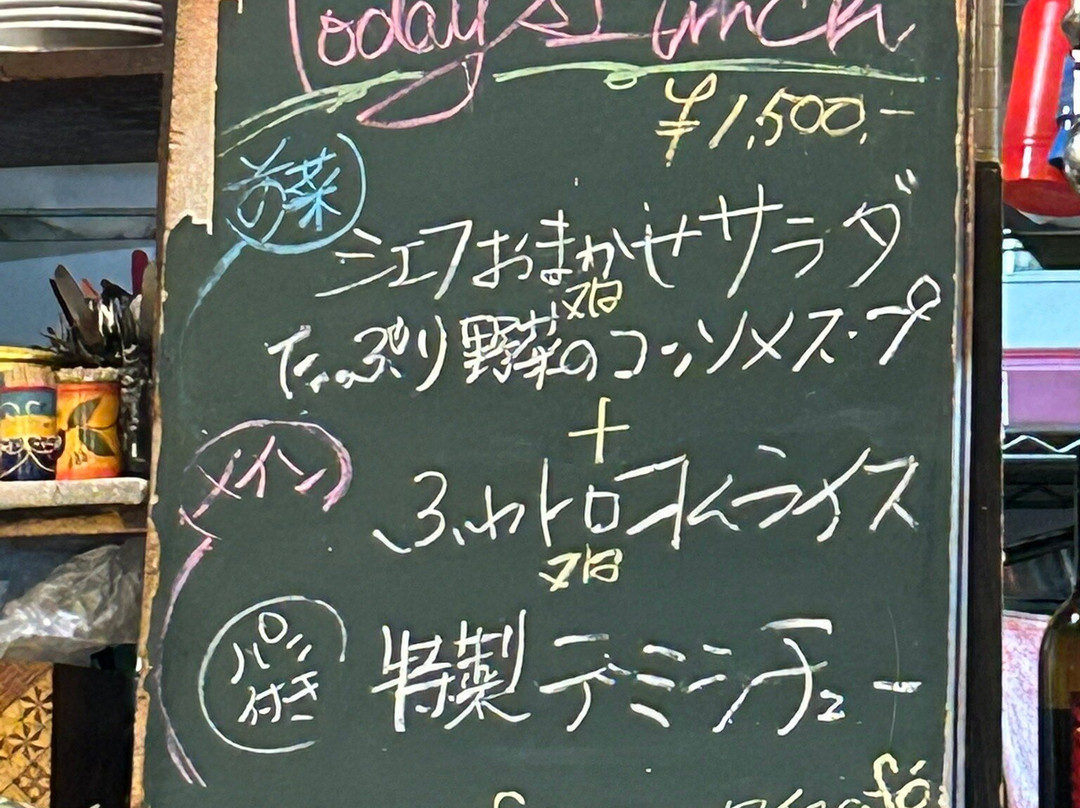 Today's Lunch
¥1,500.-
前菜
シェフおまかせサラダ
又は
たっぷり野菜のコンソメスープ
+
メイン
ふわトロオムライス
又は
パン付き
特製デミシチュー